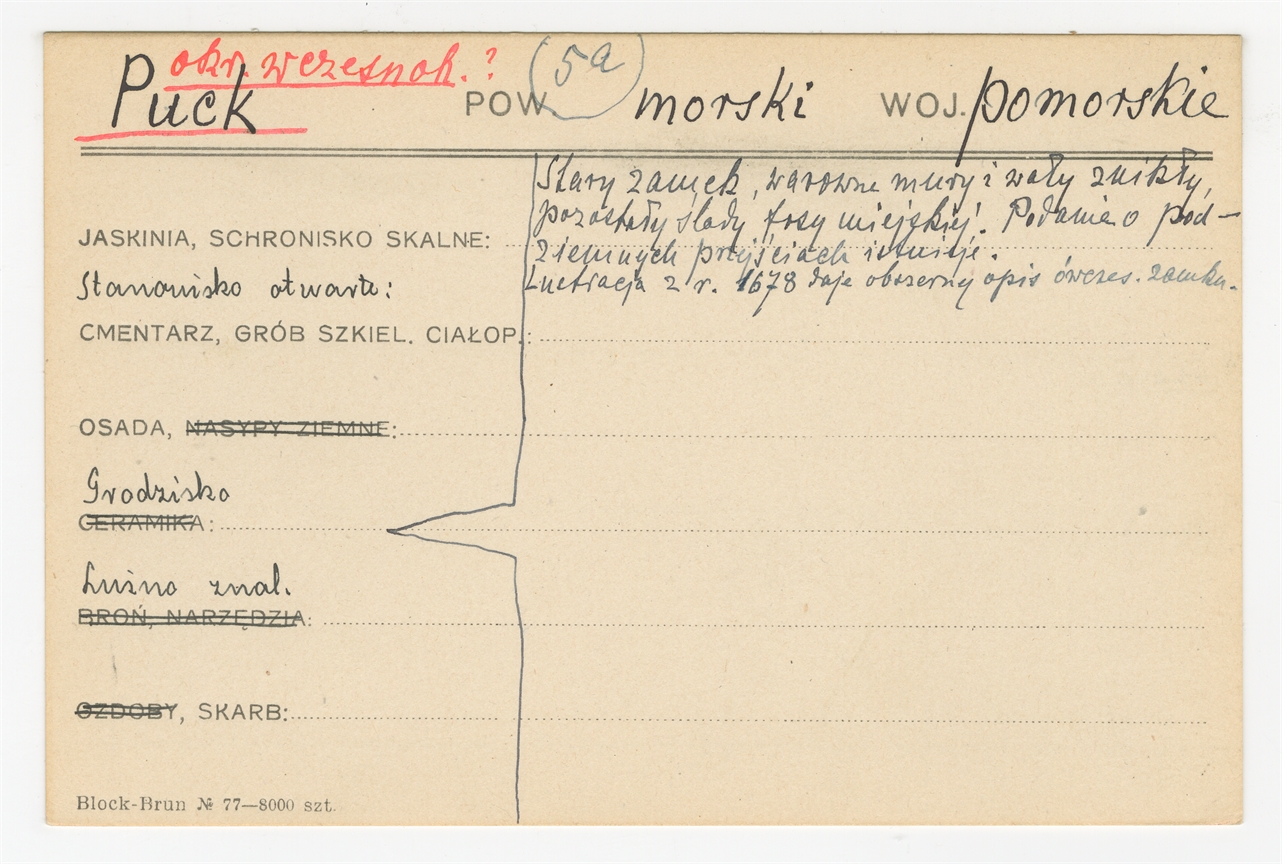 okr. wczesnoh.?
(5a)
Puck POW. morski WOJ. pomorskie
Stary zamek, warowne mury i wały znikły,
pozostały ślady fosy miejskiej. Podanie o pod-
JASKINIA, SCHRONISKO SKALNE:
ziemnych przejściach istnieje.
Stanowisko otwarte:
Lustracja z r. 1678 daje obszerny opis ówczes. zamku.
CMENTARZ, GRÓB SZKIEL. CIAŁOP.:
OSADA, NASYPY ZIEMNE:
Grodzisko
CERAMIKA:
Luźno znal.
BROŃ, NARZĘDZIA:
OZDOBY, SKARB:
Block-Brun № 77—8000 szt.